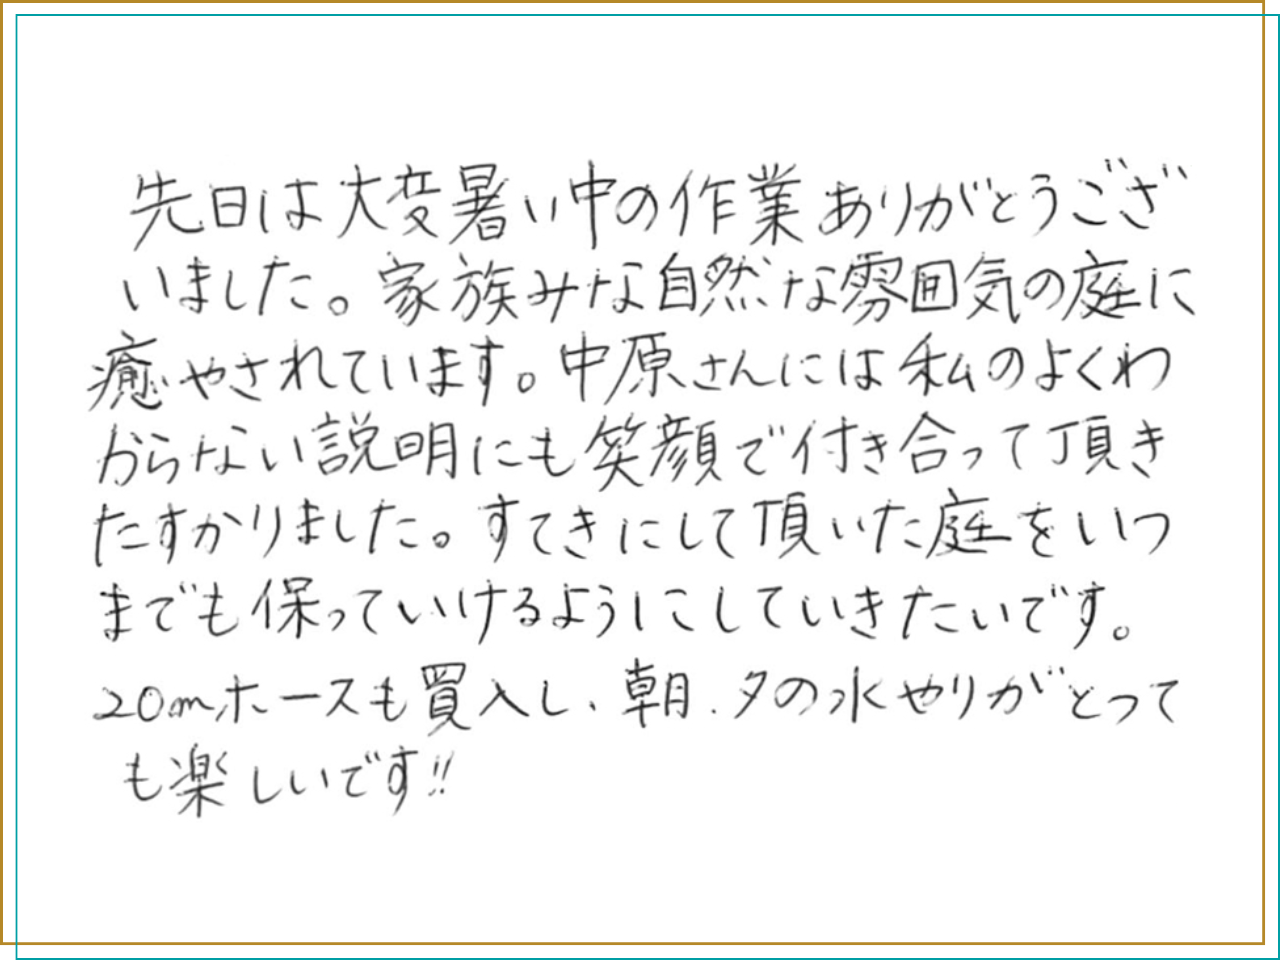 先日は大変暑い中の作業ありがとうござ
いました。家族みな自然な雰囲気の庭に
癒やされています。中原さんには私のよくわ
からない説明にも笑顔で付き合って頂き
たすかりました。すてきにして頂いた庭をいつ
までも保っていけるようにしていきたいです。
20mホースも買入し、朝、夕の水やりがとって
も楽しいです!!